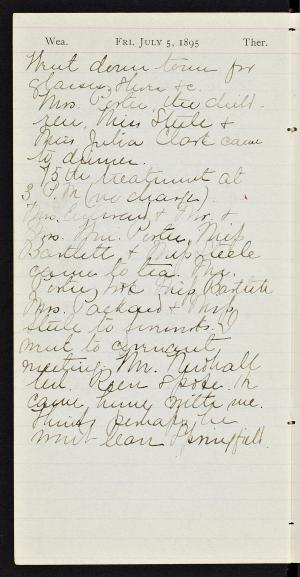 Wea. FRI. JULY 5, 1895 Ther.
Went down town for
glasses, shoes &c.
Mrs. Porter, the child-
ren, Miss Steele &
Miss Julia Clark came
to dinner.
15th treatment at
3 P.M. (no charge).
Mrs. & Mr. &
Mrs. Wm. Porter, Miss
Bartlett & Miss Steele
came to tea. Mr.
Porter took Miss Bartlett
Mrs. Packard & Miss
Steele to fireworks. I
went to covenant
meeting. Mr.
led. Keen spoke. He
came home with me.
Thinks perhaps he
won't leave Springfield.